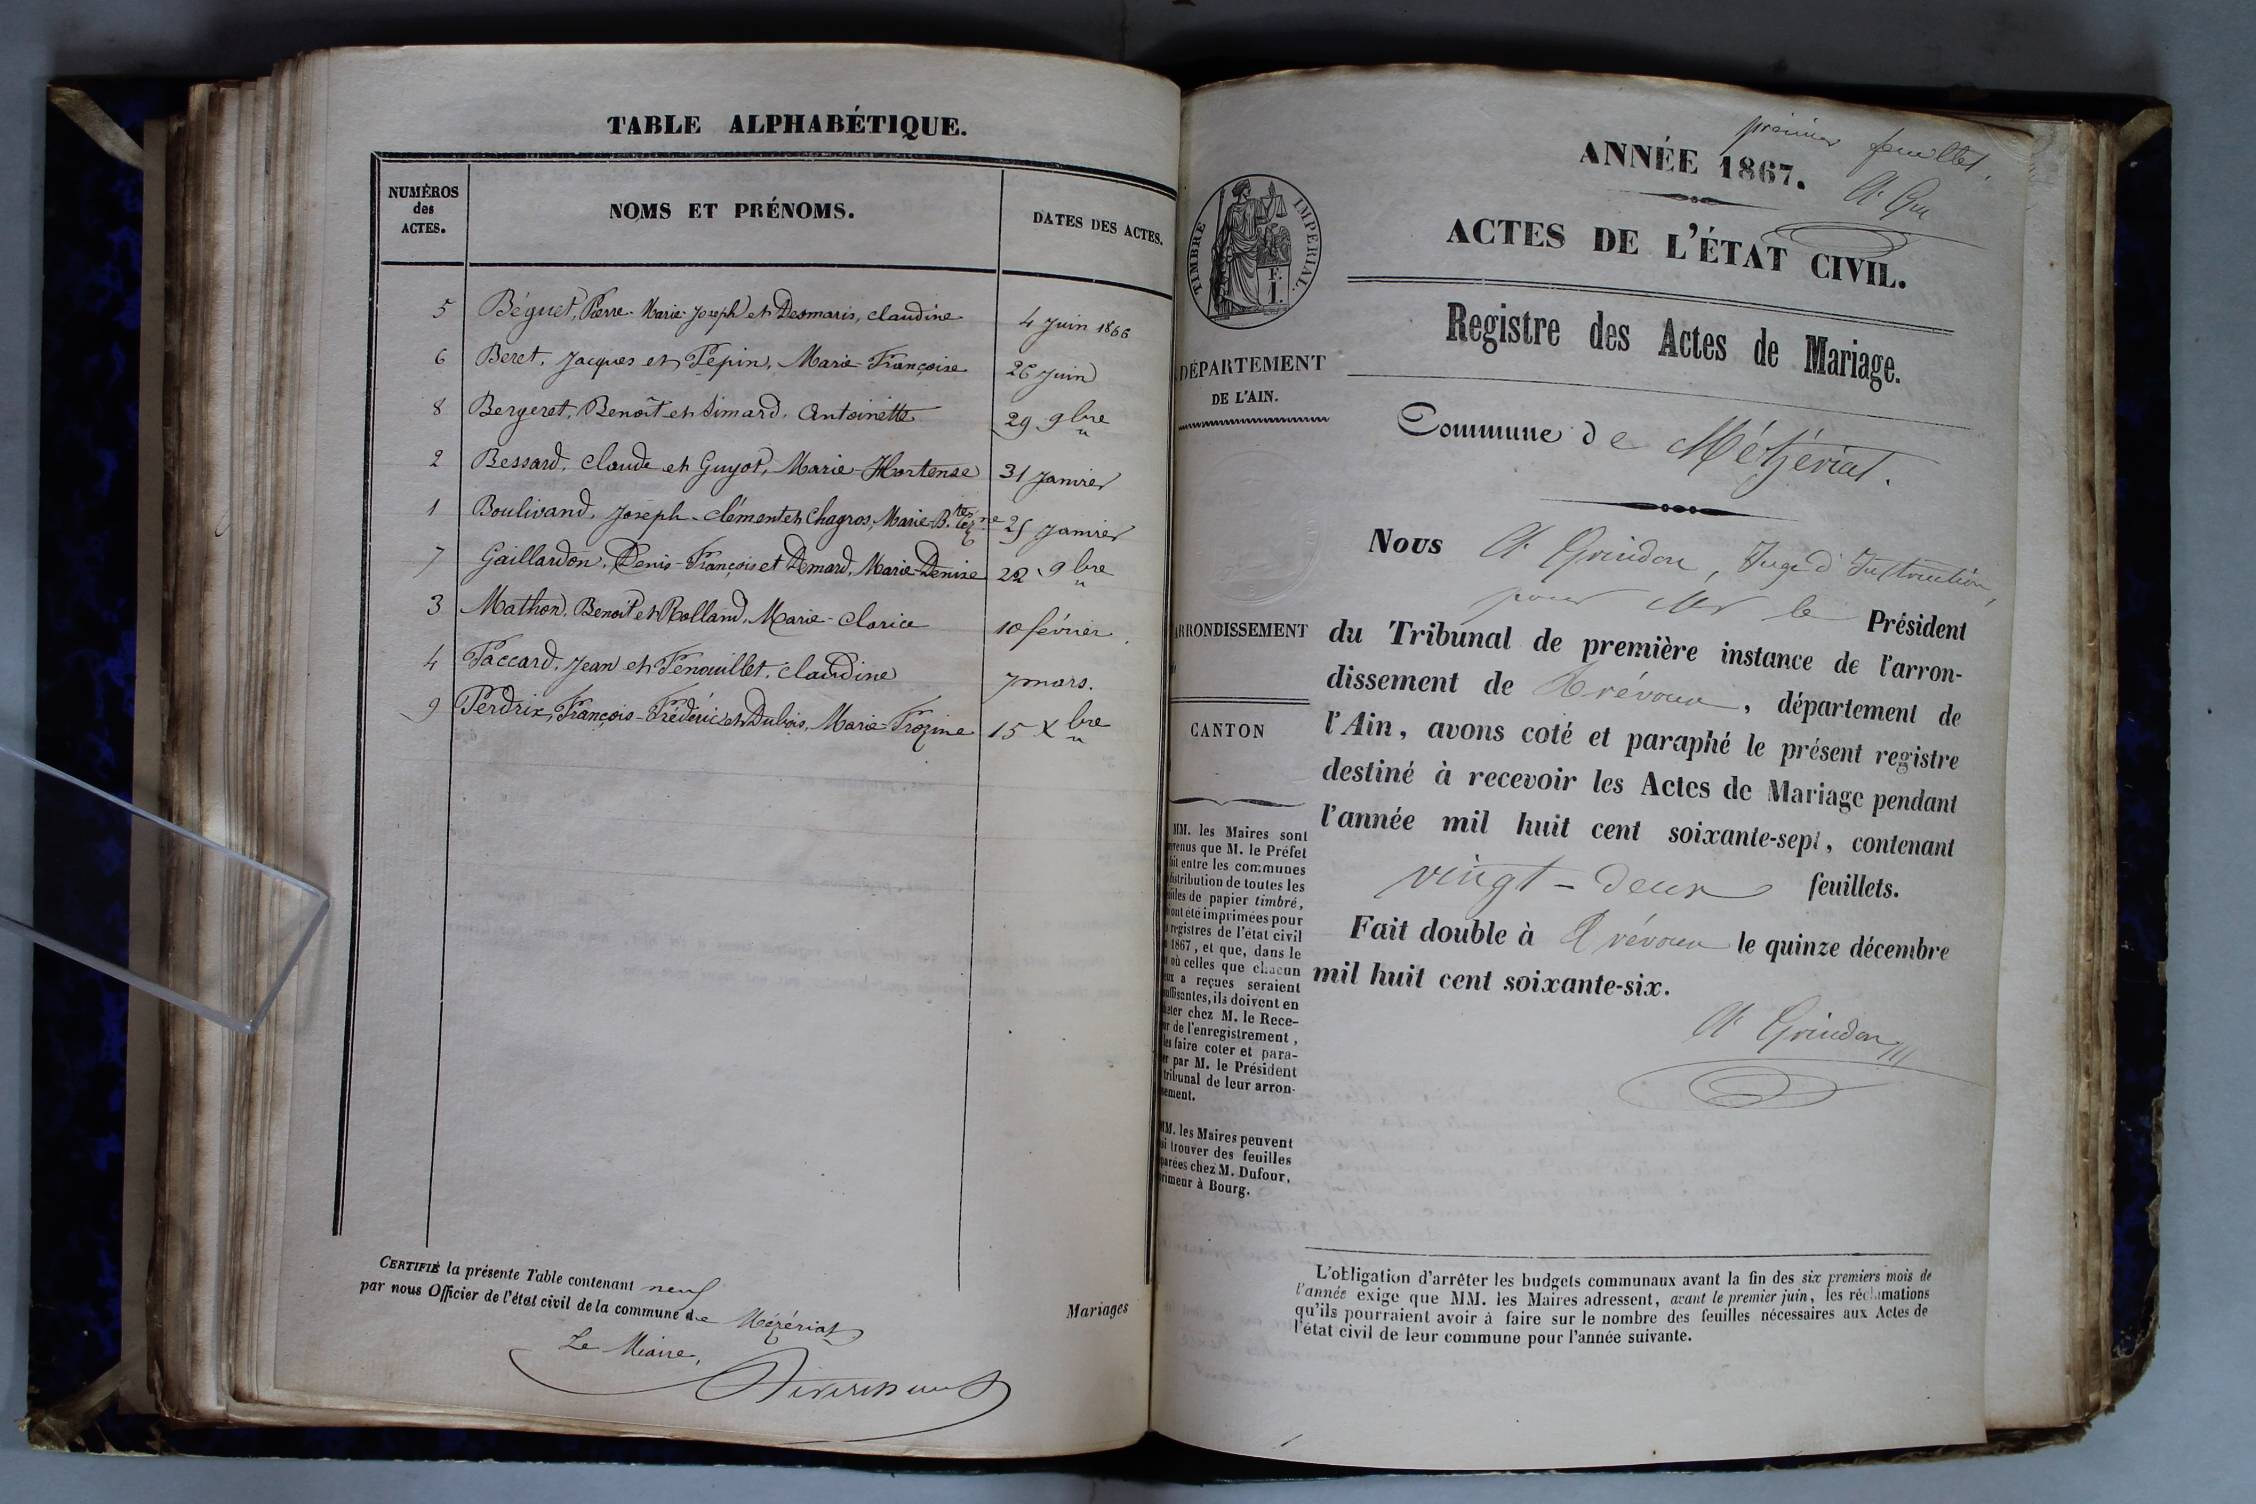 TABLE ALPHABÉTIQUE.
NUMÉROS des ACTES.
NOMS ET PRÉNOMS.
DATES DES ACTES.
5 Béguet, Pierre-Marie-Joseph et Desmaris, Claudine 4 Juin 1866
6 Beret, Jacques et Pépin, Marie-Françoise 26 Juin
8 Bergeret, Benoît et Simard, Antoinette 29 9bre
2 Bessard, Claude et Guyot, Marie-Hortense 31 Janvier
1 Boulivand, Joseph-Clément et Chagros, Marie 25 Janvier
7 Gaillardon, Denis-François et Amard, Marie-Denise 22 9bre
3 Mathon, Benoit et Rolland, Marie-Clarice 10 février
4 Paccard, Jean et Fenouillet, Claudine 7 mars.
9 Perdrix, François-Frédéric et Dubois, Marie-Frozine 15 Xbre
CERTIFIÉ la présente Table contenant neuf
par nous Officier de l'état civil de la commune de Mézériat
Le Maire,
Mariages
premier feuillet.
ANNÉE 1867.
ACTES DE L'ÉTAT CIVIL.
TIMBRE IMPÉRIAL.
F.
1.
Registre des Actes de Mariage.
DÉPARTEMENT
DE L'AIN.
Commune de Mézériat.
Nous A Grindon, Juge d'Instruction,
pour Mr le Président
ARRONDISSEMENT
du Tribunal de première instance de l'arron-
dissement de Trévoux, département de
l'Ain, avons coté et paraphé le présent registre
CANTON
destiné à recevoir les Actes de Mariage pendant
l'année mil huit cent soixante-sept, contenant
vingt-deux feuillets.
Fait double à Trévoux le quinze décembre
mil huit cent soixante-six.
A Grindon
MM. les Maires sont
que M. le Préfet
entre les communes
distribution de toutes les
de papier timbré,
ont été imprimées pour
registres de l'état civil
1867, et que, dans le
où celles que chacun
a reçues seraient
ils doivent en
chez M. le Rece-
de l'enregistrement,
les faire coter et para-
par M. le Président
tribunal de leur arron-
MM. les Maires peuvent
trouver des feuilles
chez M. Dufour,
à Bourg.
L'obligation d'arrêter les budgets communaux avant la fin des six premiers mois de
l'année exige que MM. les Maires adressent, avant le premier juin, les réclamations
qu'ils pourraient avoir à faire sur le nombre des feuilles nécessaires aux Actes de
l'état civil de leur commune pour l'année suivante.